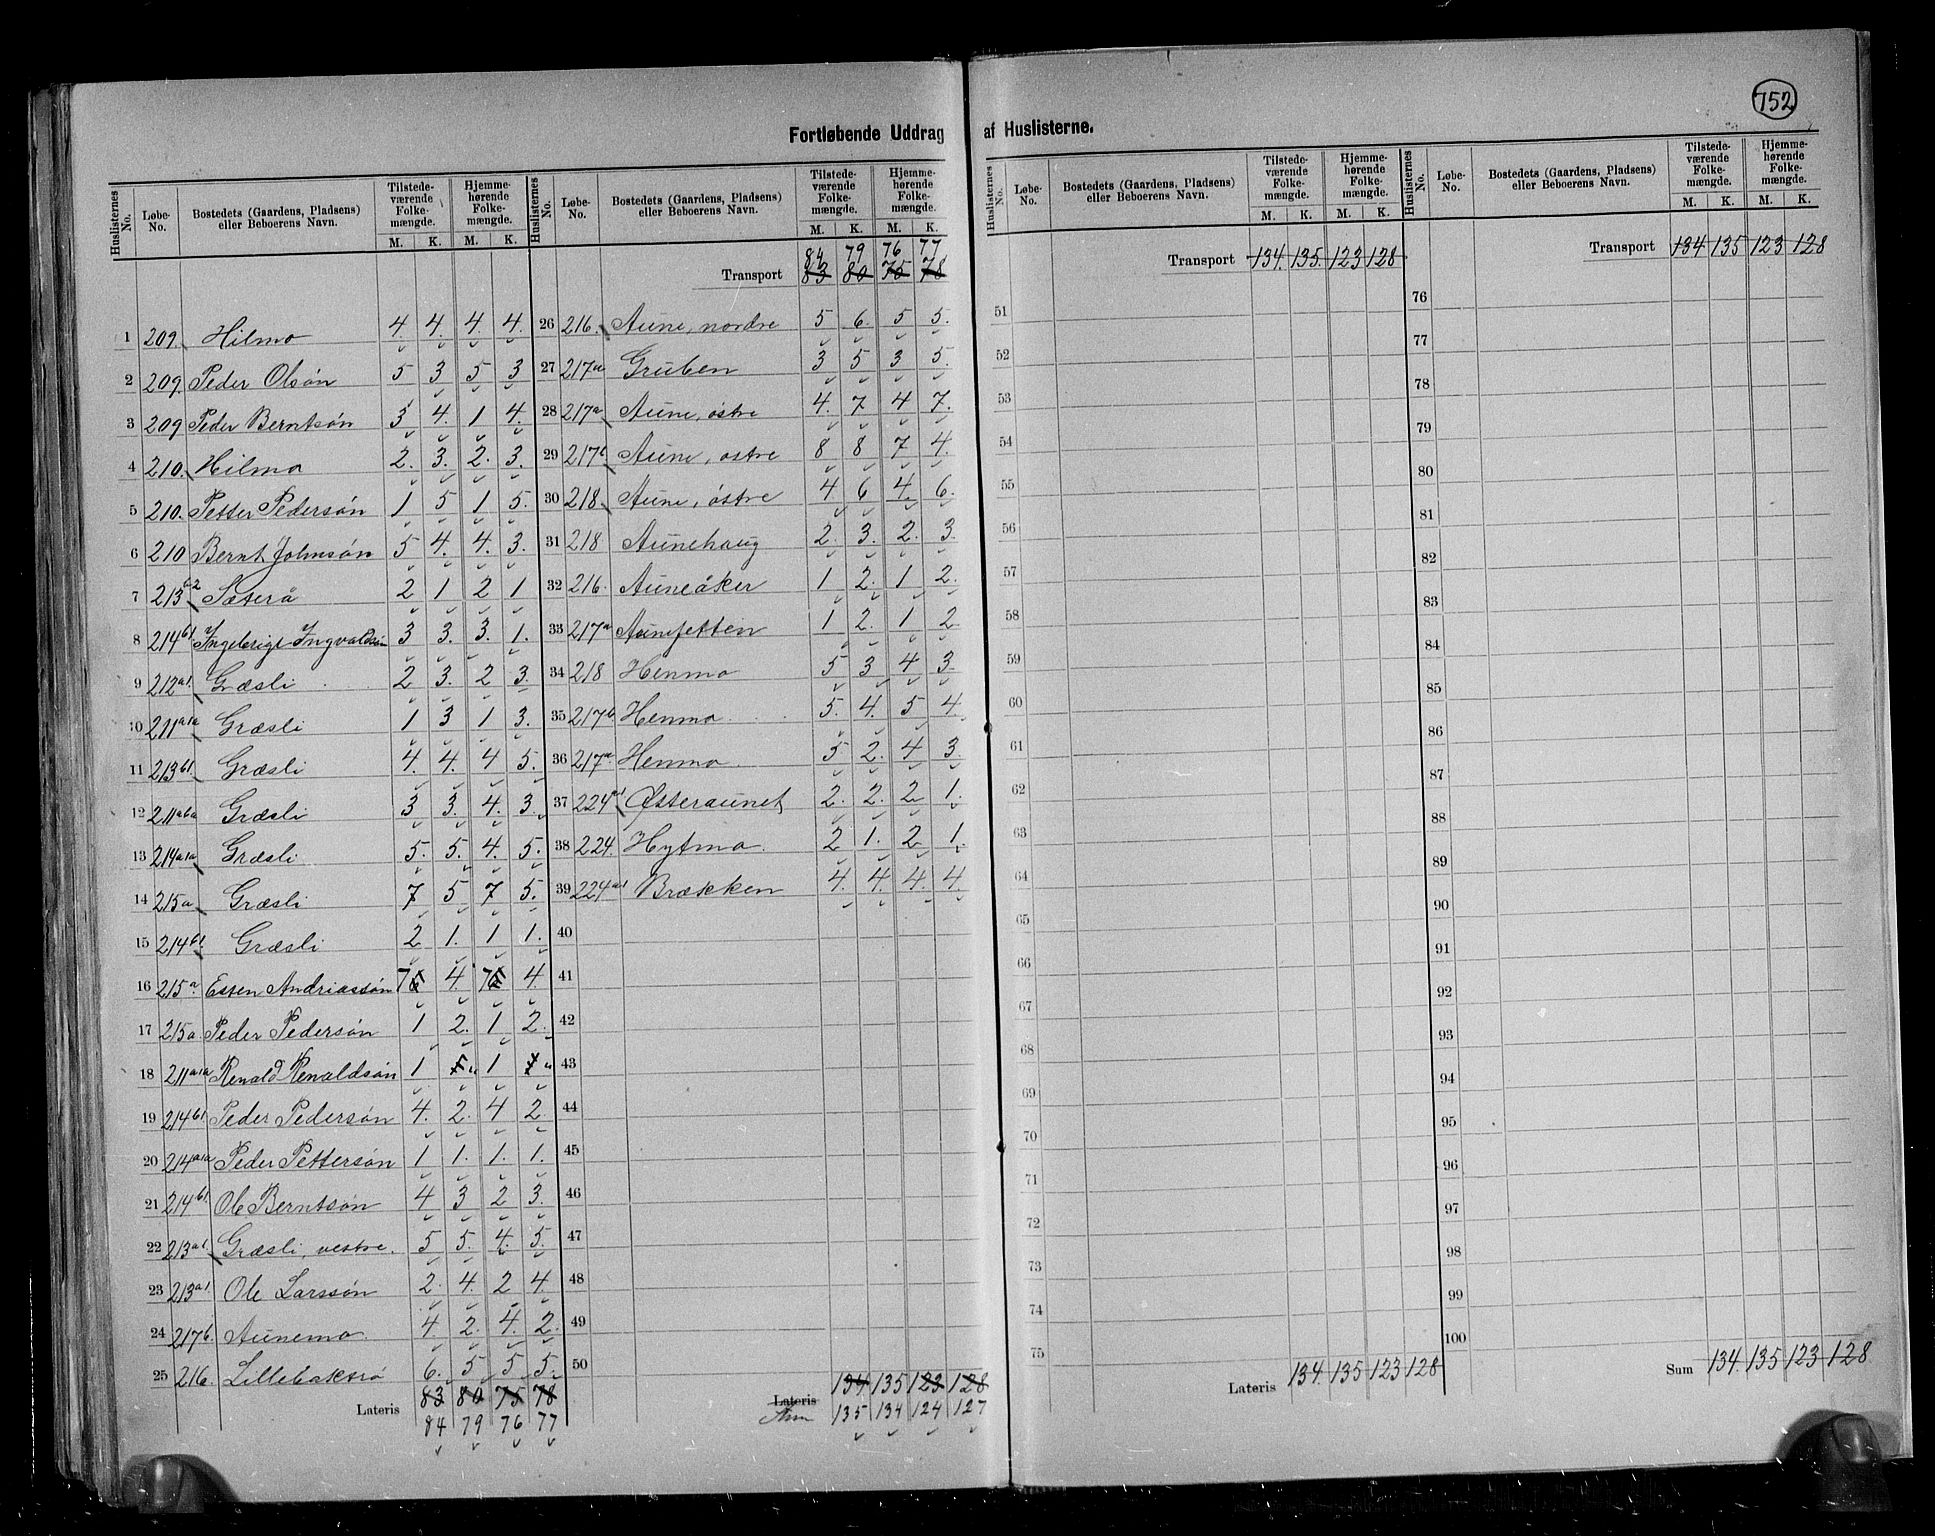 752
Fortløbende Uddrag af Huslisterne.
Huslisternes No. | Løbe-No. | Bostedets (Gaardens, Pladsens) eller Beboerens Navn. | Tilstedeværende Folkemængde. M. K. | Hjemmehørende Folkemængde. M. K.
1 209. Hilmo 4. 4. 4. 4.
2 209. Peder Olsøn 5 3 5 3
3 209 Peder Berntsøn 3 4. 1 4.
4 210. Hilmo 2. 3. 2. 3.
5 210. Petter Pedersøn 1 5 1 5.
6 210 Bernt Johnsøn 5 4. 4. 3.
7 213 Sæterå 2 1 2 1
8 214b1. Ingebrigt Ingvaldsøn 3 3. 3. 1.
9 212a1. Græsli 2 3. 2 3.
10 211a1a Græsli 1 3 1 3.
11 213b1. Græsli 4. 4. 4 5.
12 211a6a Græsli 3 3. 4. 3.
13 214a1a Græsli 5. 5. 4. 5.
14 215a Græsli 7 5 7 5.
15 214b1. Græsli 2 1. 1 1.
16 215a Esten Andriassøn 7 4. 7 4.
17 215a. Peder Pedersøn 1 2. 1 2.
18 211a1a Renald Renaldsøn 1 " 1 "
19 214b1. Peder Pedersøn 4. 2. 4 2.
20 214a1a Peder Pettersøn 1 1. 1. 1.
21 214b1. Ole Berntsøn 4 3 2 3.
22 213a1. Græsli, vestre. 5 5. 4. 5.
23 213a1. Ole Larssøn 2. 4. 2 4.
24 217b. Aunemo. 4. 2. 4. 2.
25 216. Lillebakrø 6. 5 5 5.
Lateris 83 80 75 78
84 79 76 77
Huslisternes No. | Løbe-No. | Bostedets (Gaardens, Pladsens) eller Beboerens Navn. | Tilstedeværende Folkemængde. M. K. | Hjemmehørende Folkemængde. M. K.
84 79 76 77
Transport 83 80 75 78
26 216. Aune, nordre 5 6. 5 5.
27 217a Gruben 3 5 3 5.
28 217a. Aune, østre 4. 7 4 7.
29 217b Aune, østre 8 8 7 4.
30 218. Aune, østre 4 6 4. 6.
31 218 Aunehaug 2. 3. 2. 3.
32 216. Auneåker 1 2. 1 2.
33 217a Aunefetten 1 2. 1 2
34 218 Henmo 5 3 4 3.
35 217b Henmo. 5. 4. 5 4.
36 217a. Henmo. 5 2. 4 3.
37 224a1. Østeraunet 2. 2. 2 1.
38 224. Hytmo. 2 1. 2 1.
39 224a1 Brækken 4. 4. 4. 4.
40
41
42
43
44
45
46
47
48
49
50
Lateris 134 135 123 128
Sum 135 134 124 127
Huslisternes No. | Løbe-No. | Bostedets (Gaardens, Pladsens) eller Beboerens Navn. | Tilstedeværende Folkemængde. M. K. | Hjemmehørende Folkemængde. M. K.
Transport 134. 135. 123 128
51
52
53
54
55
56
57
58
59
60
61
62
63
64
65
66
67
68
69
70
71
72
73
74
75
Lateris 134. 135 123 128
Huslisternes No. | Løbe-No. | Bostedets (Gaardens, Pladsens) eller Beboerens Navn. | Tilstedeværende Folkemængde. M. K. | Hjemmehørende Folkemængde. M. K.
Transport 134 135 123 128
76
77
78
79
80
81
82
83
84
85
86
87
88
89
90
91
92
93
94
95
96
97
98
99
100
Sum 134. 135 123 128